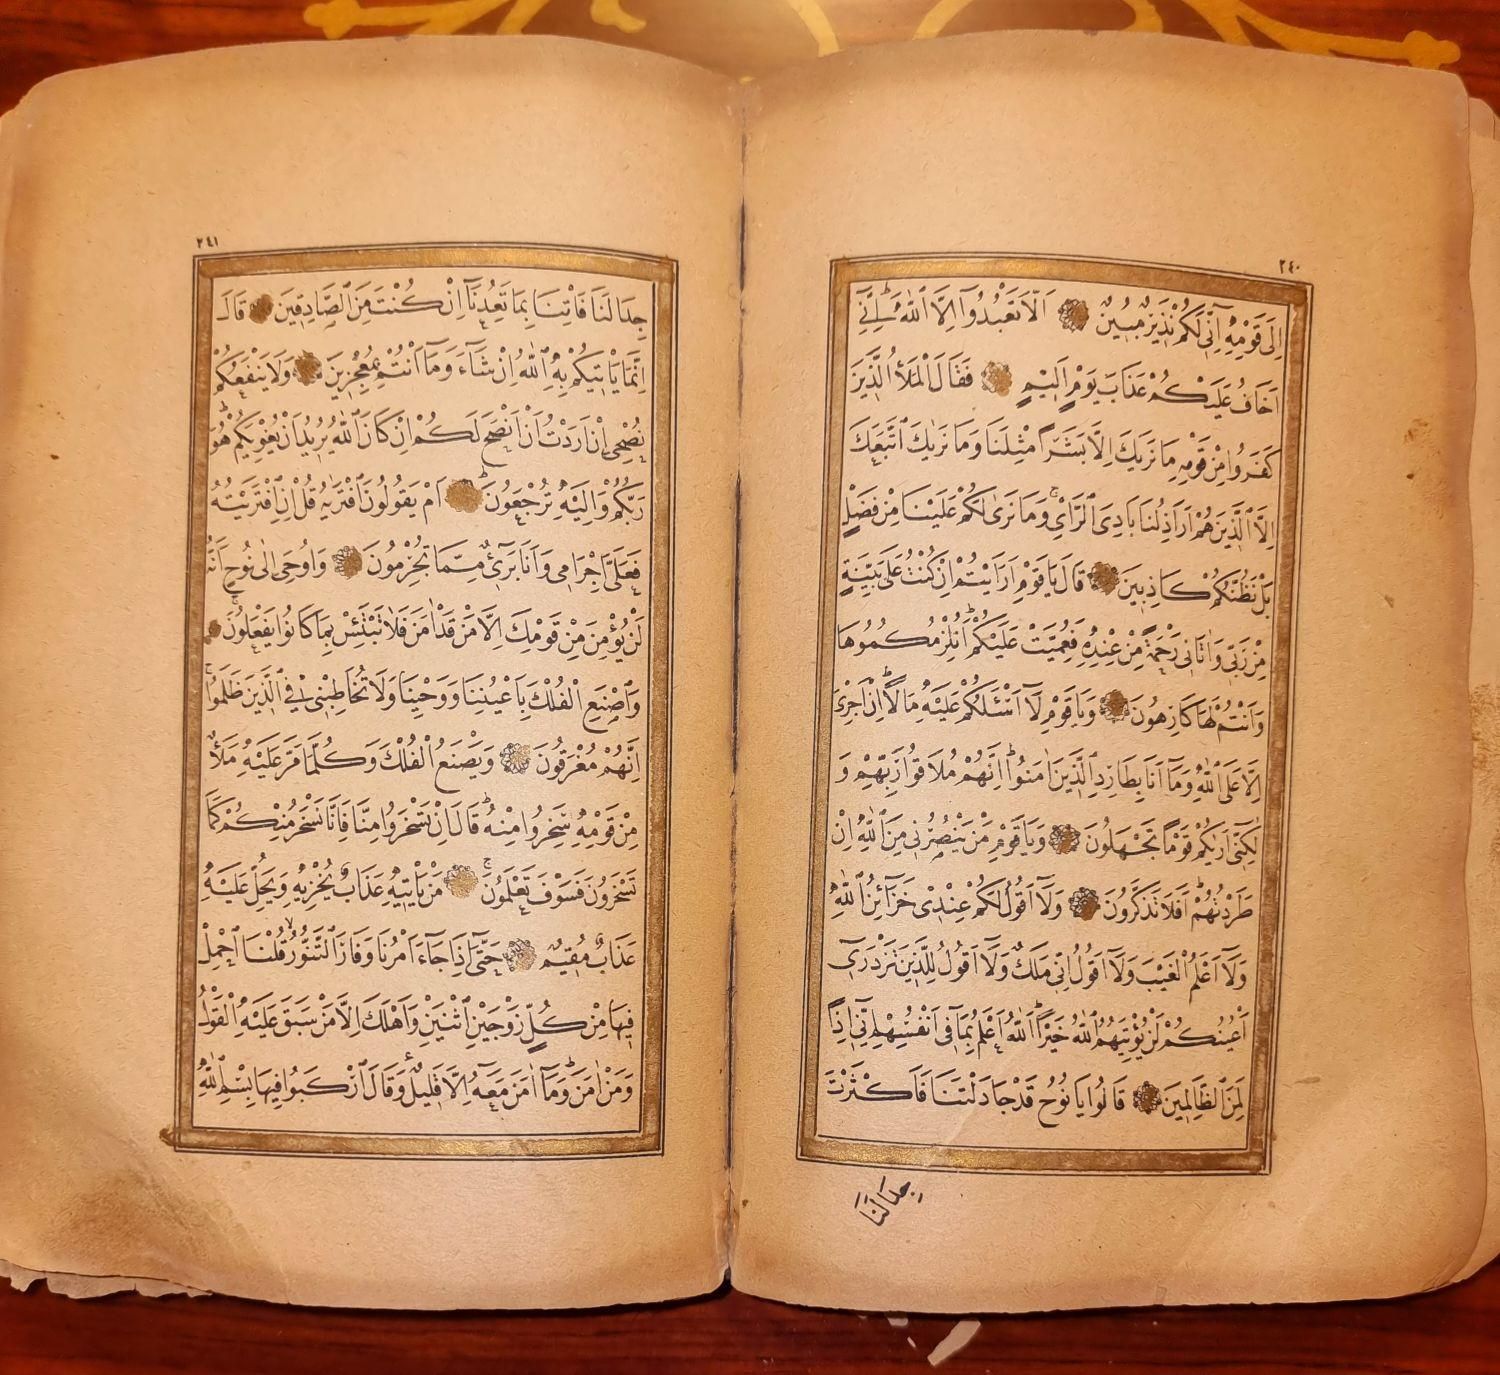 ٢٤٠
اِلٰى قَوْمِهٖ اِنّٖى لَكُمْ نَذٖيرٌ مُبٖينٌ اَلَّا تَعْبُدُٓوا اِلَّا اللّٰهَ اِنّٖٓى
اَخَافُ عَلَيْكُمْ عَذَابَ يَوْمٍ اَلٖيمٍ فَقَالَ الْمَلَأُ الَّذٖينَ
كَفَرُوا مِنْ قَوْمِهٖ مَا نَرٰيكَ اِلَّا بَشَرًا مِثْلَنَا وَمَا نَرٰيكَ اتَّبَعَكَ
اِلَّا الَّذٖينَ هُمْ اَرَاذِلُنَا بَادِىَ الرَّأْىِ وَمَا نَرٰى لَكُمْ عَلَيْنَا مِنْ فَضْلٍ
بَلْ نَظُنُّكُمْ كَاذِبٖينَ قَالَ يَا قَوْمِ اَرَاَيْتُمْ اِنْ كُنْتُ عَلٰى بَيِّنَةٍ
مِنْ رَبّٖى وَاٰتَانٖى رَحْمَةً مِنْ عِنْدِهٖ فَعُمِّيَتْ عَلَيْكُمْ اَنُلْزِمُكُمُوهَا
وَاَنْتُمْ لَهَا كَارِهُونَ وَيَا قَوْمِ لَٓا اَسْئَلُكُمْ عَلَيْهِ مَالًا اِنْ اَجْرِىَ
اِلَّا عَلَى اللّٰهِ وَمَٓا اَنَا بِطَارِدِ الَّذٖينَ اٰمَنُوا اِنَّهُمْ مُلَاقُوا رَبِّهِمْ وَ
لٰكِنّٖٓى اَرٰيكُمْ قَوْمًا تَجْهَلُونَ وَيَا قَوْمِ مَنْ يَنْصُرُنٖى مِنَ اللّٰهِ اِنْ
طَرَدْتُهُمْ اَفَلَا تَذَكَّرُونَ وَلَٓا اَقُولُ لَكُمْ عِنْدٖى خَزَٓائِنُ اللّٰهِ
وَلَٓا اَعْلَمُ الْغَيْبَ وَلَٓا اَقُولُ اِنّٖى مَلَكٌ وَلَٓا اَقُولُ لِلَّذٖينَ تَزْدَرٖٓى
اَعْيُنُكُمْ لَنْ يُؤْتِيَهُمُ اللّٰهُ خَيْرًا اَللّٰهُ اَعْلَمُ بِمَا فٖٓى اَنْفُسِهِمْ اِنّٖٓى اِذًا
لَمِنَ الظَّالِمٖينَ قَالُوا يَا نُوحُ قَدْ جَادَلْتَنَا فَاَكْثَرْتَ
جِدَالَنَا
٢٤١
جِدَالَنَا فَاْتِنَا بِمَا تَعِدُنَٓا اِنْ كُنْتَ مِنَ الصَّادِقٖينَ قَالَ
اِنَّمَا يَاْتٖيكُمْ بِهِ اللّٰهُ اِنْ شَٓاءَ وَمَٓا اَنْتُمْ بِمُعْجِزٖينَ وَلَا يَنْفَعُكُمْ
نُصْحٖٓى اِنْ اَرَدْتُ اَنْ اَنْصَحَ لَكُمْ اِنْ كَانَ اللّٰهُ يُرٖيدُ اَنْ يُغْوِيَكُمْ هُوَ
رَبُّكُمْ وَاِلَيْهِ تُرْجَعُونَ اَمْ يَقُولُونَ افْتَرٰيهُ قُلْ اِنِ افْتَرَيْتُهُ
فَعَلَىَّ اِجْرَامٖى وَاَنَا بَرٖٓىءٌ مِمَّا تُجْرِمُونَ وَاُوحِىَ اِلٰى نُوحٍ اَنَّهُ
لَنْ يُؤْمِنَ مِنْ قَوْمِكَ اِلَّا مَنْ قَدْ اٰمَنَ فَلَا تَبْتَئِسْ بِمَا كَانُوا يَفْعَلُونَ
وَاصْنَعِ الْفُلْكَ بِاَعْيُنِنَا وَوَحْيِنَا وَلَا تُخَاطِبْنٖى فِى الَّذٖينَ ظَلَمُوا
اِنَّهُمْ مُغْرَقُونَ وَيَصْنَعُ الْفُلْكَ وَكُلَّمَا مَرَّ عَلَيْهِ مَلَأٌ
مِنْ قَوْمِهٖ سَخِرُوا مِنْهُ قَالَ اِنْ تَسْخَرُوا مِنَّا فَاِنَّا نَسْخَرُ مِنْكُمْ كَمَا
تَسْخَرُونَ فَسَوْفَ تَعْلَمُونَ مَنْ يَاْتٖيهِ عَذَابٌ يُخْزٖيهِ وَيَحِلُّ عَلَيْهِ
عَذَابٌ مُقٖيمٌ حَتّٰٓى اِذَا جَٓاءَ اَمْرُنَا وَفَارَ التَّنُّورُ قُلْنَا احْمِلْ
فٖيهَا مِنْ كُلٍّ زَوْجَيْنِ اثْنَيْنِ وَاَهْلَكَ اِلَّا مَنْ سَبَقَ عَلَيْهِ الْقَوْلُ
وَمَنْ اٰمَنَ وَمَٓا اٰمَنَ مَعَهُٓ اِلَّا قَلٖيلٌ وَقَالَ ارْكَبُوا فٖيهَا بِسْمِ اللّٰهِ